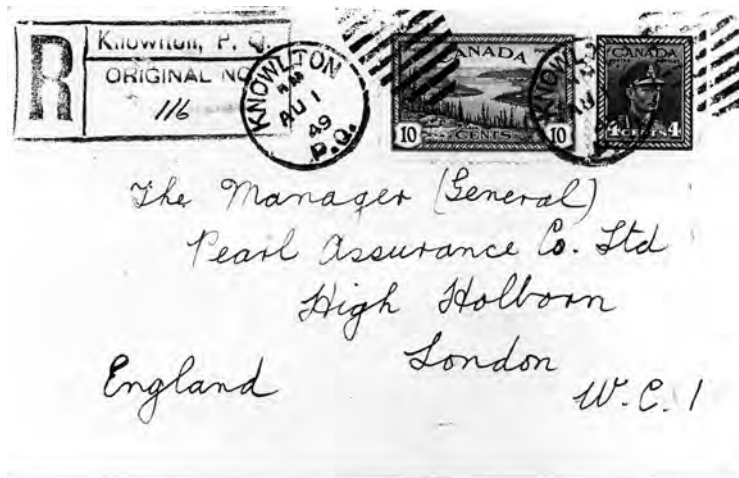 R
Knowlton, P. Q.
ORIGINAL NO
116
KNOWLTON
AM
AU 1
49
P.Q.
CANADA
10 CENTS 10
CANADA
4 CENTS 4
The Manager (General)
Pearl Assurance Co. Ltd
High Holborn
London
England
W.C. 1